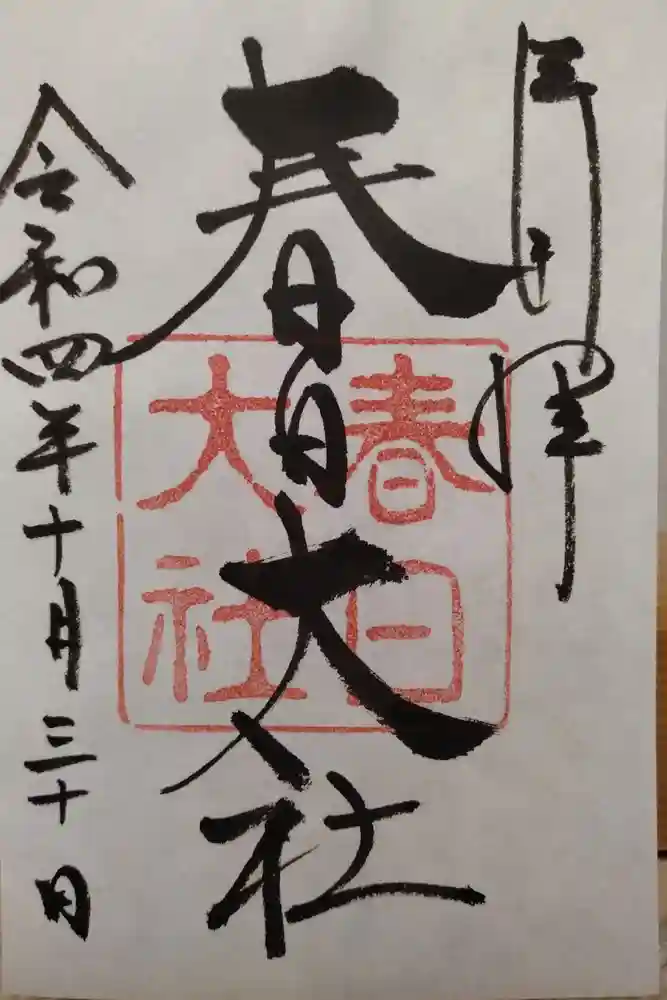 奉拝
春日大社
春日
大社
令和四年十月三十日